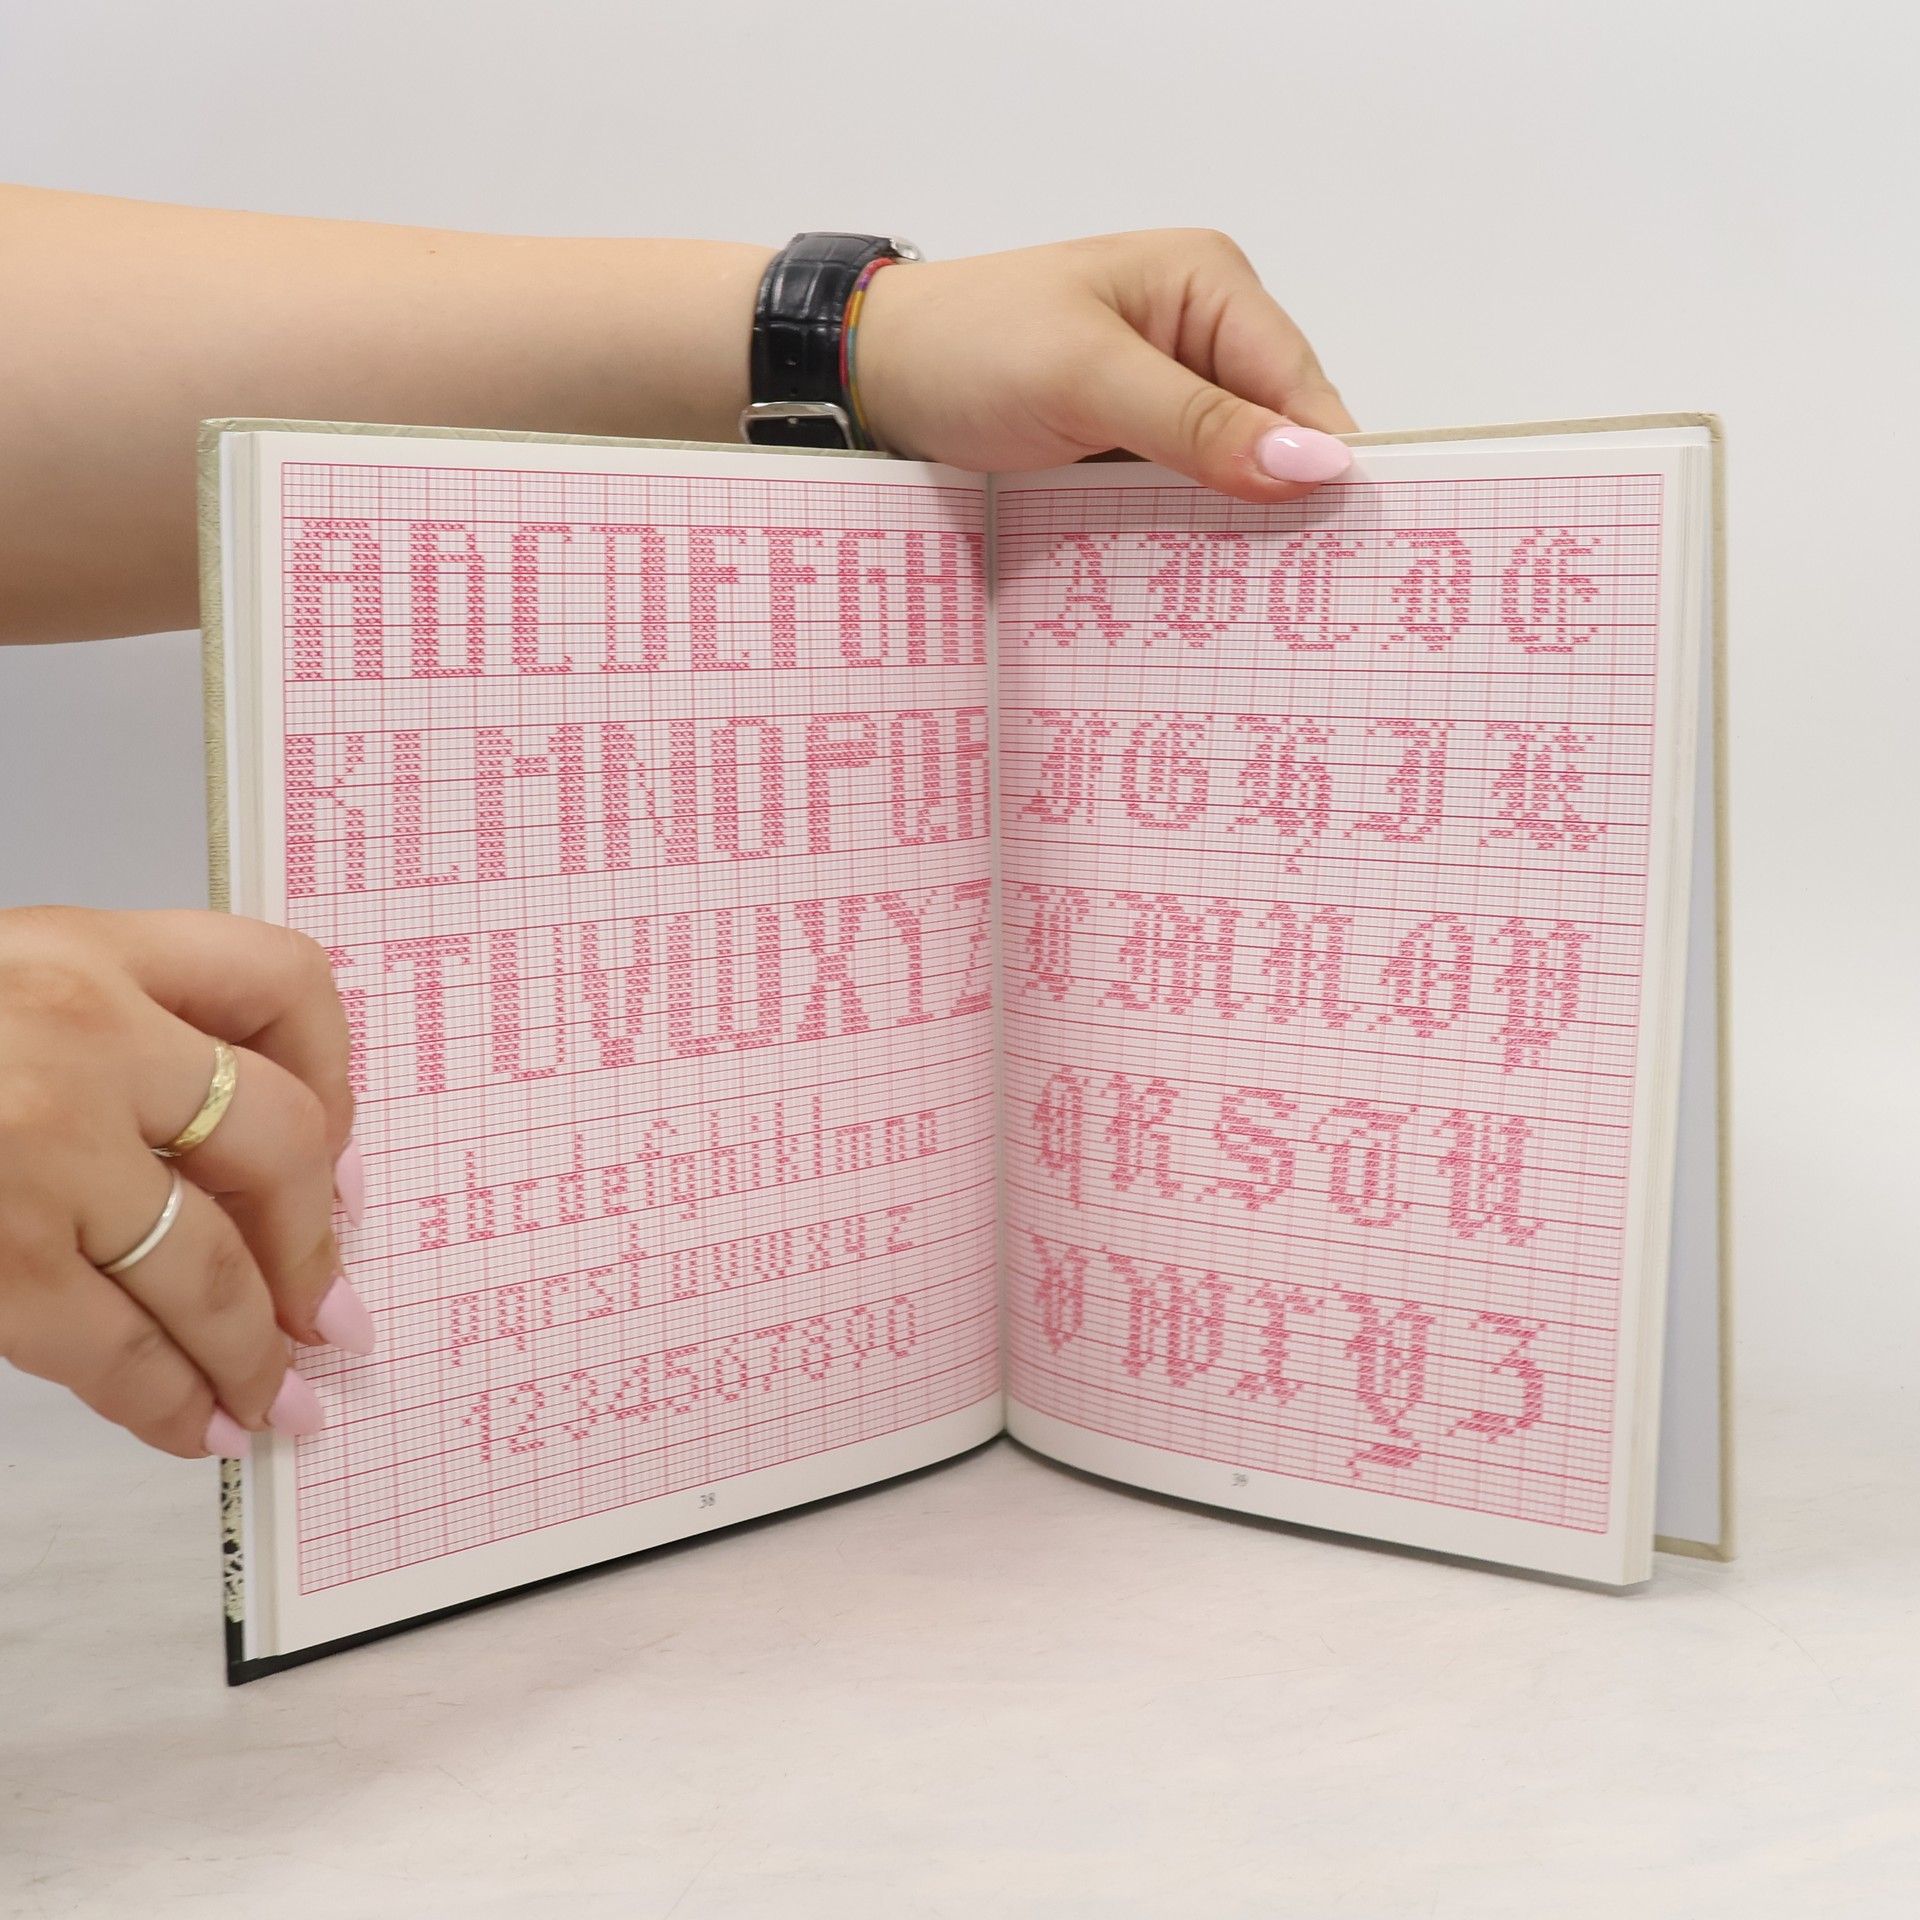 ABCDEFGH
KLMNOPQR
STUVWXYZ
abcdefghiklmno
pqrstuvwxyz
1234567890
38
A B C D E
F G H I K
L M N O P
Q R S T U
V W X Y Z
39